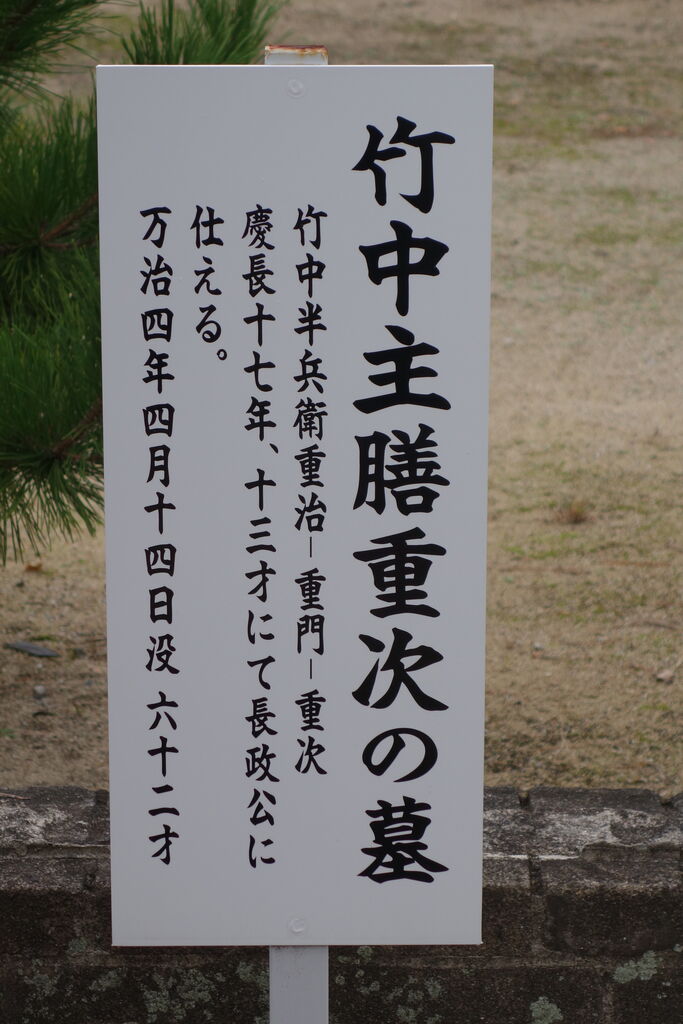 竹中主膳重次の墓
竹中半兵衛重治－重門－重次
慶長十七年、十三才にて長政公に
仕える。
万治四年四月十四日没 六十二才